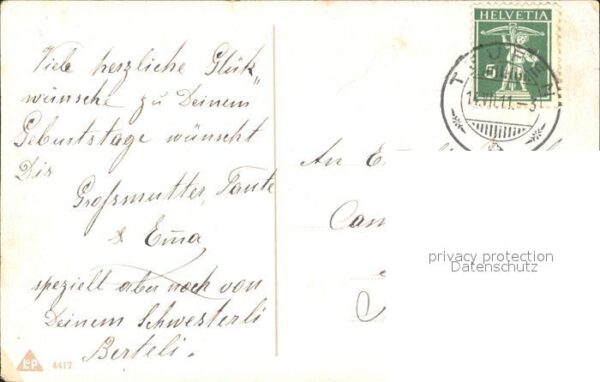 Viele herzliche Glük-
wünsche zu Deinem
Geburtstage wünscht
Dir
Grossmutter, Tante
& Emma
speziell aber noch von
Deinem Schwesterli
Berteli.
HELVETIA
5
An
privacy protection
Datenschutz
L&P
4417